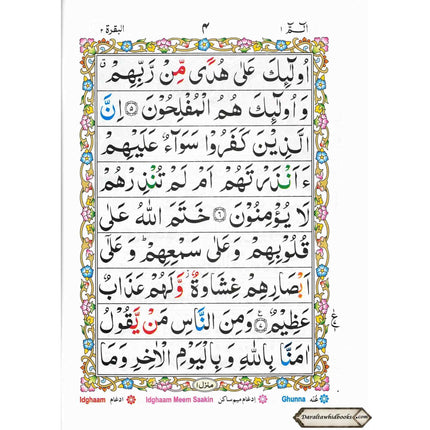 الٓمّٓ ١
٤
البقرة ٢
اُولٰٓئِكَ عَلٰى هُدًى مِّنْ رَّبِّهِمْ ۙ
وَ اُولٰٓئِكَ هُمُ الْمُفْلِحُوْنَ ۝٥ اِنَّ
الَّذِيْنَ كَفَرُوْا سَوَآءٌ عَلَيْهِمْ
ءَاَنْذَرْتَهُمْ اَمْ لَمْ تُنْذِرْهُمْ
لَا يُؤْمِنُوْنَ ۝٦ خَتَمَ اللّٰهُ عَلٰى
قُلُوْبِهِمْ وَ عَلٰى سَمْعِهِمْ ؕ وَ عَلٰٓى
اَبْصَارِهِمْ غِشَاوَةٌ ؗ وَّ لَهُمْ عَذَابٌ
عَظِيْمٌ ۝٧ وَ مِنَ النَّاسِ مَنْ يَّقُوْلُ
اٰمَنَّا بِاللّٰهِ وَ بِالْيَوْمِ الْاٰخِرِ وَ مَا
منزل ١
Idghaam ادغام Idghaam Meem Saakin ادغام میم ساکن Ghunna غنّه
Daraltawhidbooks.com